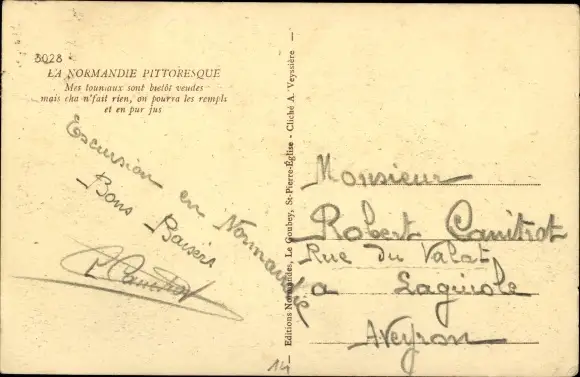 3028
LA NORMANDIE PITTORESQUE
Mes touniaux sont bietôt veudes
mais cha n'fait rien, on pourra les rempli
et en pur jus
Excursion en Normandie
Bons Baisers
Canitrot
Editions Normandes, Le Goubey, St-Pierre-Église - Cliché A. Veyssière
Monsieur
Robert Canitrot
Rue du Valat
a Laguiole
Aveyron
14